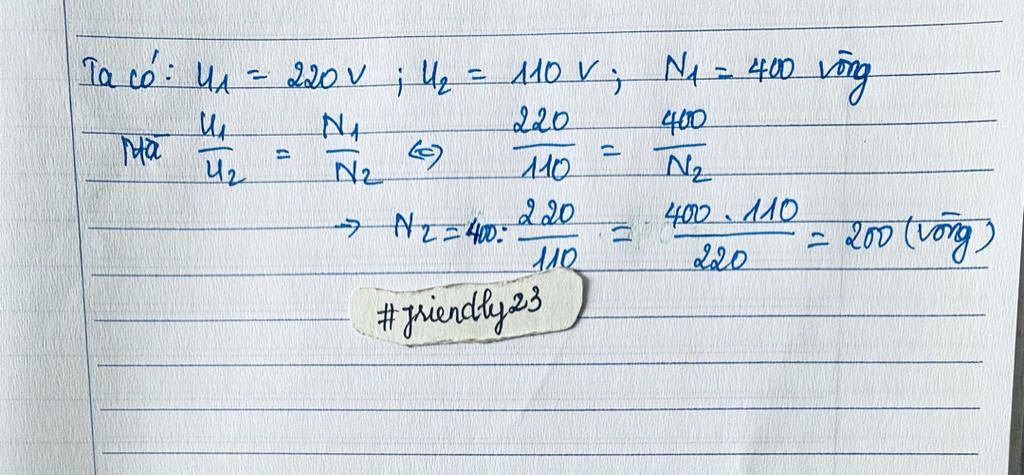 Ta có: U1 = 220V ; U2 = 110 V ; N1 = 400 vòng
Mà U1/U2 = N1/N2 <=> 220/110 = 400/N2
→ N2 = 400: 220/110 = 400 . 110/220 = 200 (vòng)
#friendly23